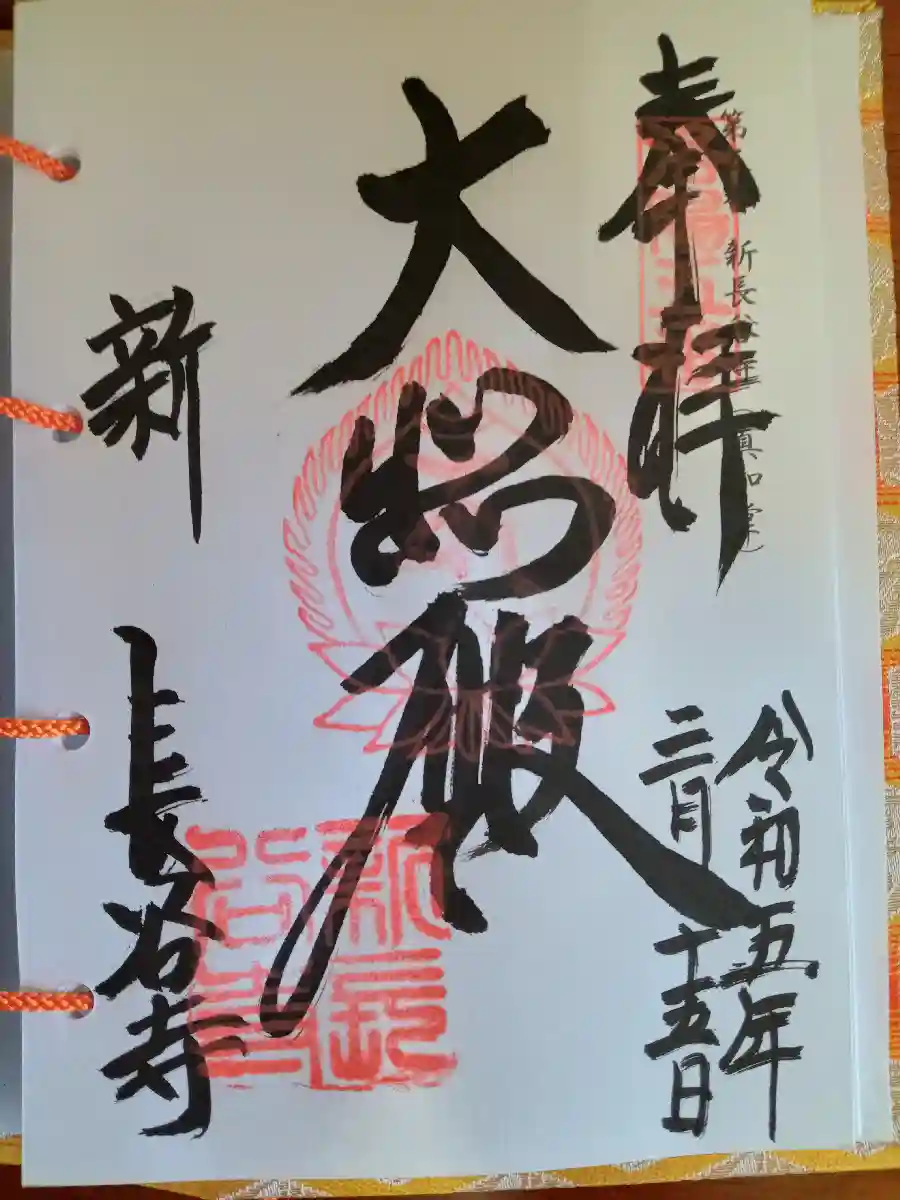 新長谷寺 真如堂
奉拝
令和五年
三月十五日
大悲殿
新長谷寺
新長
谷寺